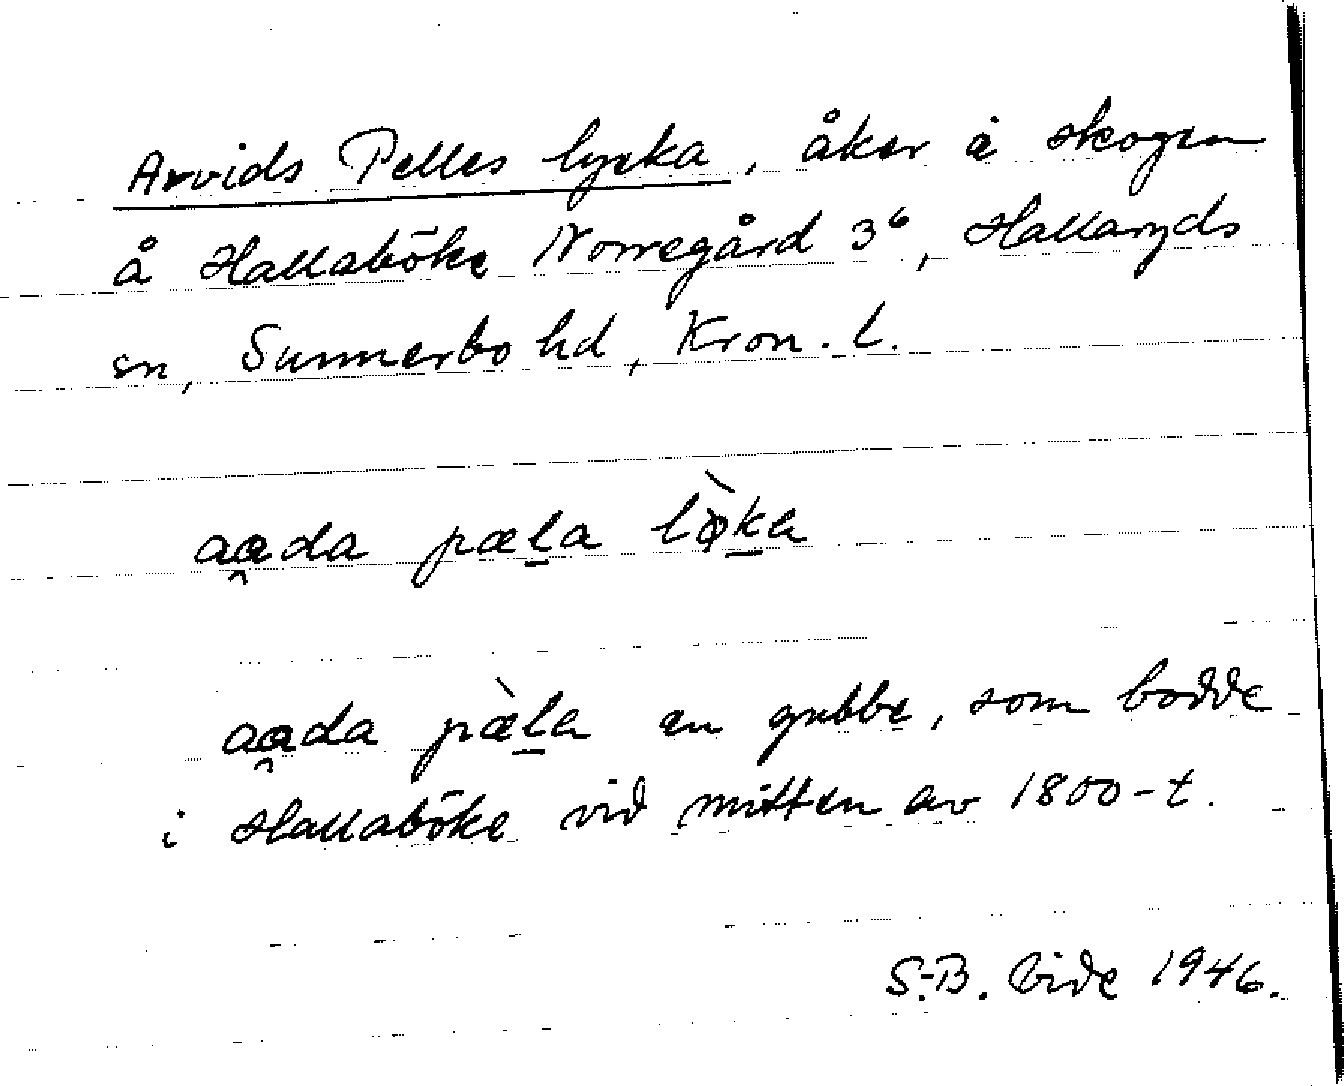 Arvids Pelles lycka, åker å skogen
å Hallaböke Norregård 3⁶, Hallaryds
sn, Sunnerbo hd, Kron. l.
aa̯da pæl̲a lø̀k̲a
aa̯da pæ̀l̲a en gubbe, som bodde
i Hallaböke vid mitten av 1800-t.
S.-B. Vide 1946.